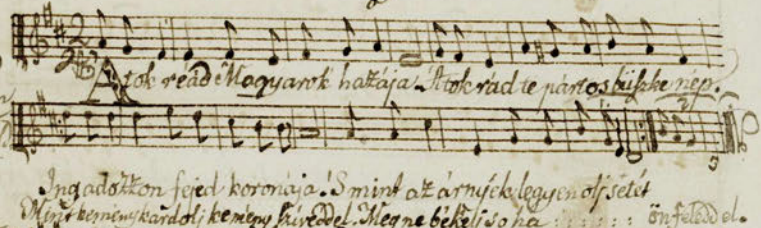 Átok reád Magyarok hazája. Átok rád te pártos büszke nép.
Ingadozzon fejed koronája. S mint az árnyék legyen olj setét
Mint kemény kardolj kemény sziveddel. Meg ne békélj soha : : : : : : önfeleddel.